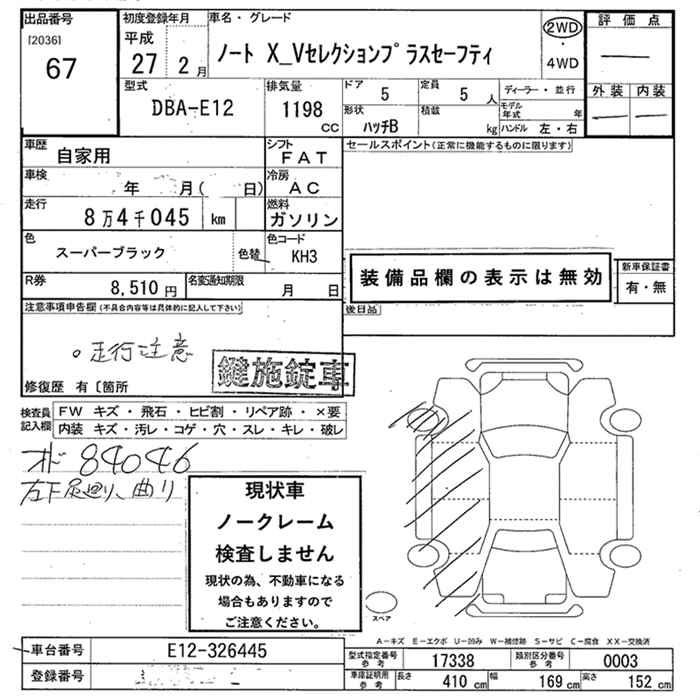 出品番号
[2036]
67
初度登録年月
平成
27 2月
車名・グレード
ノート X_Vセレクションプラスセーフティ
2WD
・
4WD
評価点
外装 内装
型式
DBA-E12
排気量
1198
CC
ドア 5
定員 5 人
ディーラー・並行
形状
ハッチB
積載
kg
モデル年式 年
ハンドル 左・右
車歴
自家用
シフト
FAT
セールスポイント(正常に機能するものに限ります)
車検
年 月( 日)
冷房
AC
走行
8万4千045 km
燃料
ガソリン
色
スーパーブラック
色替
色コード
KH3
R券
8,510円
名変通知期限
月 日
装備品欄の表示は無効
新車保証書
有・無
後日品
注意事項申告欄(不具合内容等は具体的に記入して下さい)
。走行注意
鍵施錠車
修復歴 有〔箇所
検査員記入欄
FW キズ・飛石・ヒビ割・リペア跡・×要
内装 キズ・汚レ・コゲ・穴・スレ・キレ・破レ
オド 84046
左下足廻り、曲り
現状車
ノークレーム
検査しません
現状の為、不動車になる
場合もありますので
ご注意ください。
スペア
A-キズ E-エクボ U-凹み W-補修跡 S-サビ C-腐食 XX-交換済
車台番号
E12-326445
登録番号
型式指定番号 参考
17338
類別区分番号 参考
0003
車庫証明用 参考
長さ 410 cm
幅 169 cm
高さ 152 cm